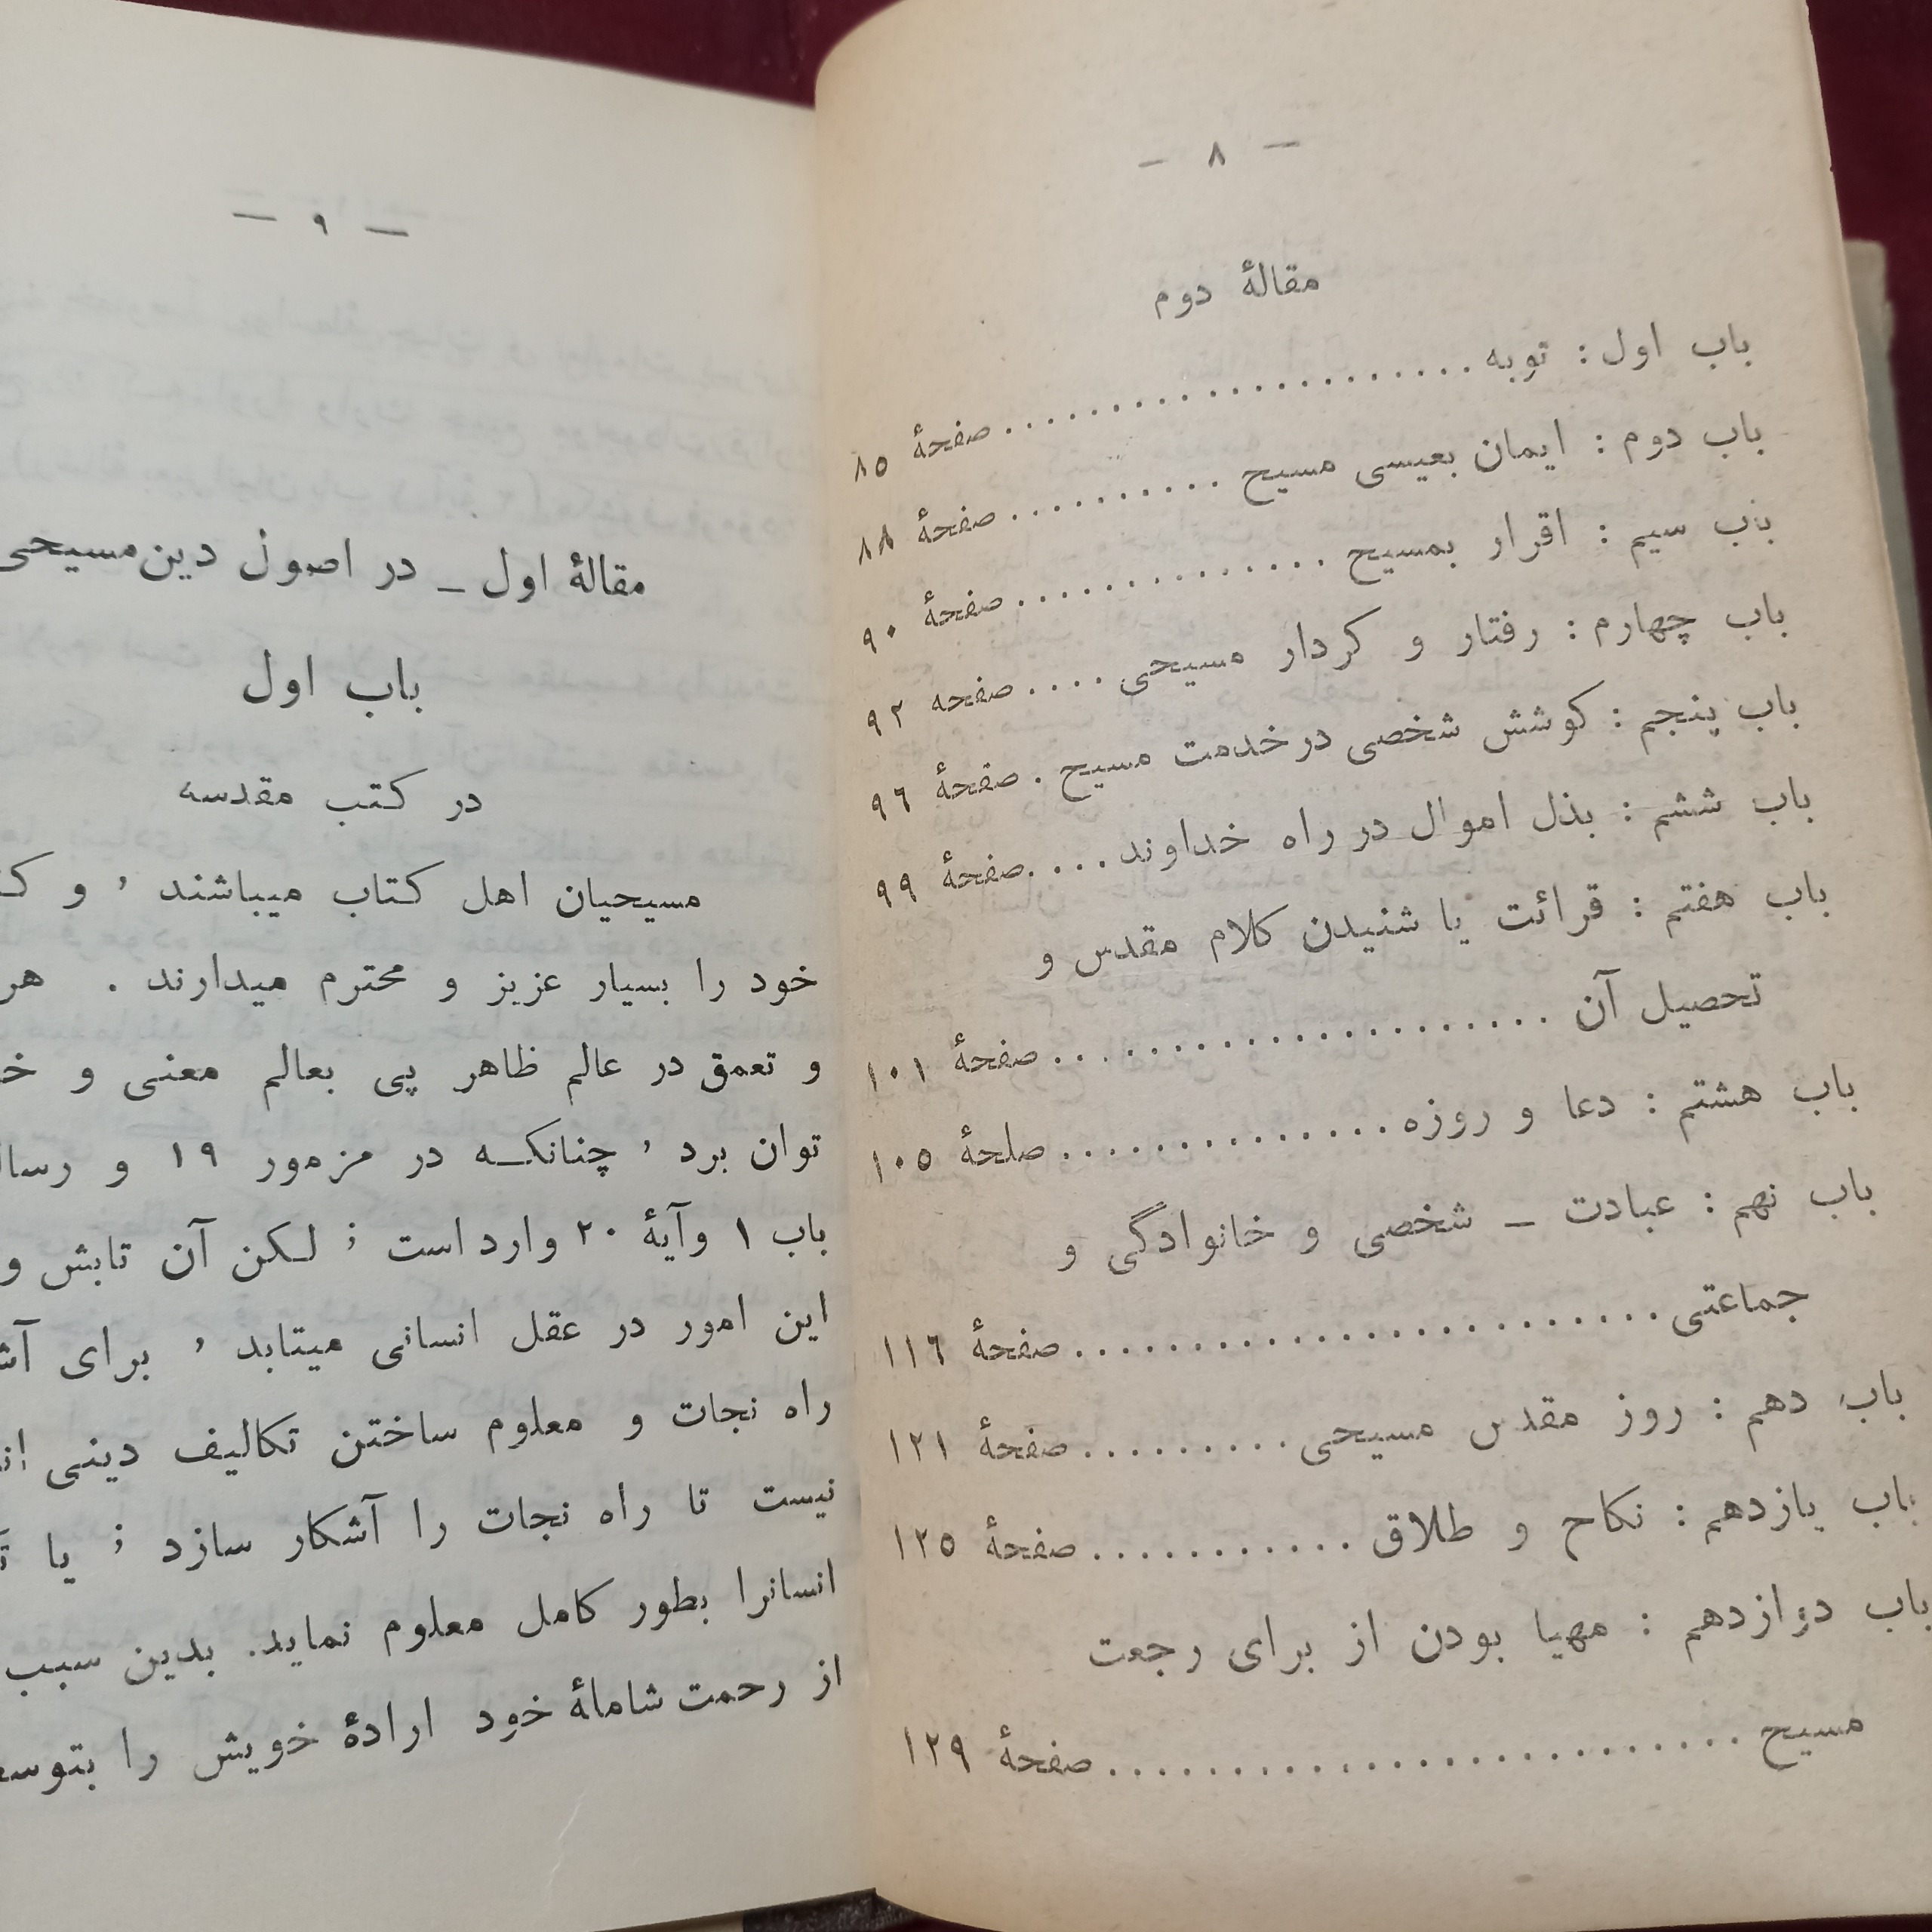 — ۸ —
مقالهٔ دوم
باب اول : توبه .................... صفحهٔ ۸۵
باب دوم : ایمان بعیسی مسیح .......... صفحهٔ ۸۸
باب سیم : اقرار بمسیح .............. صفحهٔ ۹۰
باب چهارم : رفتار و کردار مسیحی .... صفحه ۹۲
باب پنجم : کوشش شخصی در خدمت مسیح . صفحهٔ ۹٦
باب ششم : بذل اموال در راه خداوند .... صفحهٔ ۹۹
باب هفتم : قرائت یا شنیدن کلام مقدس و
تحصیل آن .................... صفحهٔ ۱۰۱
باب هشتم : دعا و روزه .............. صلحهٔ ۱۰۵
باب نهم : عبادت ـ شخصی و خانوادگی و
جماعتی ........................ صفحهٔ ۱۱٦
باب دهم : روز مقدس مسیحی ......... صفحهٔ ۱۲۱
باب یازدهم : نکاح و طلاق ........... صفحهٔ ۱۲۵
باب دوازدهم : مهیا بودن از برای رجعت
مسیح ........................ صفحهٔ ۱۲۹
— ۹ —
مقالهٔ اول ـ در اصول دین مسیحی
باب اول
در کتب مقدسه
مسیحیان اهل کتاب میباشند ، و
خود را بسیار عزیز و محترم میدارند . هر
و تعمق در عالم ظاهر پی بعالم معنی و
توان برد ، چنانکه در مزمور ۱۹ و
باب ۱ وآیهٔ ۲۰ وارد است ؛ لکن آن تابش و
این امور در عقل انسانی میتابد ، برای
راه نجات و معلوم ساختن تکالیف دینی
نیست تا راه نجات را آشکار سازد ؛ یا
انسانرا بطور کامل معلوم نماید. بدین سبب
از رحمت شاملهٔ خود ارادهٔ خویش را